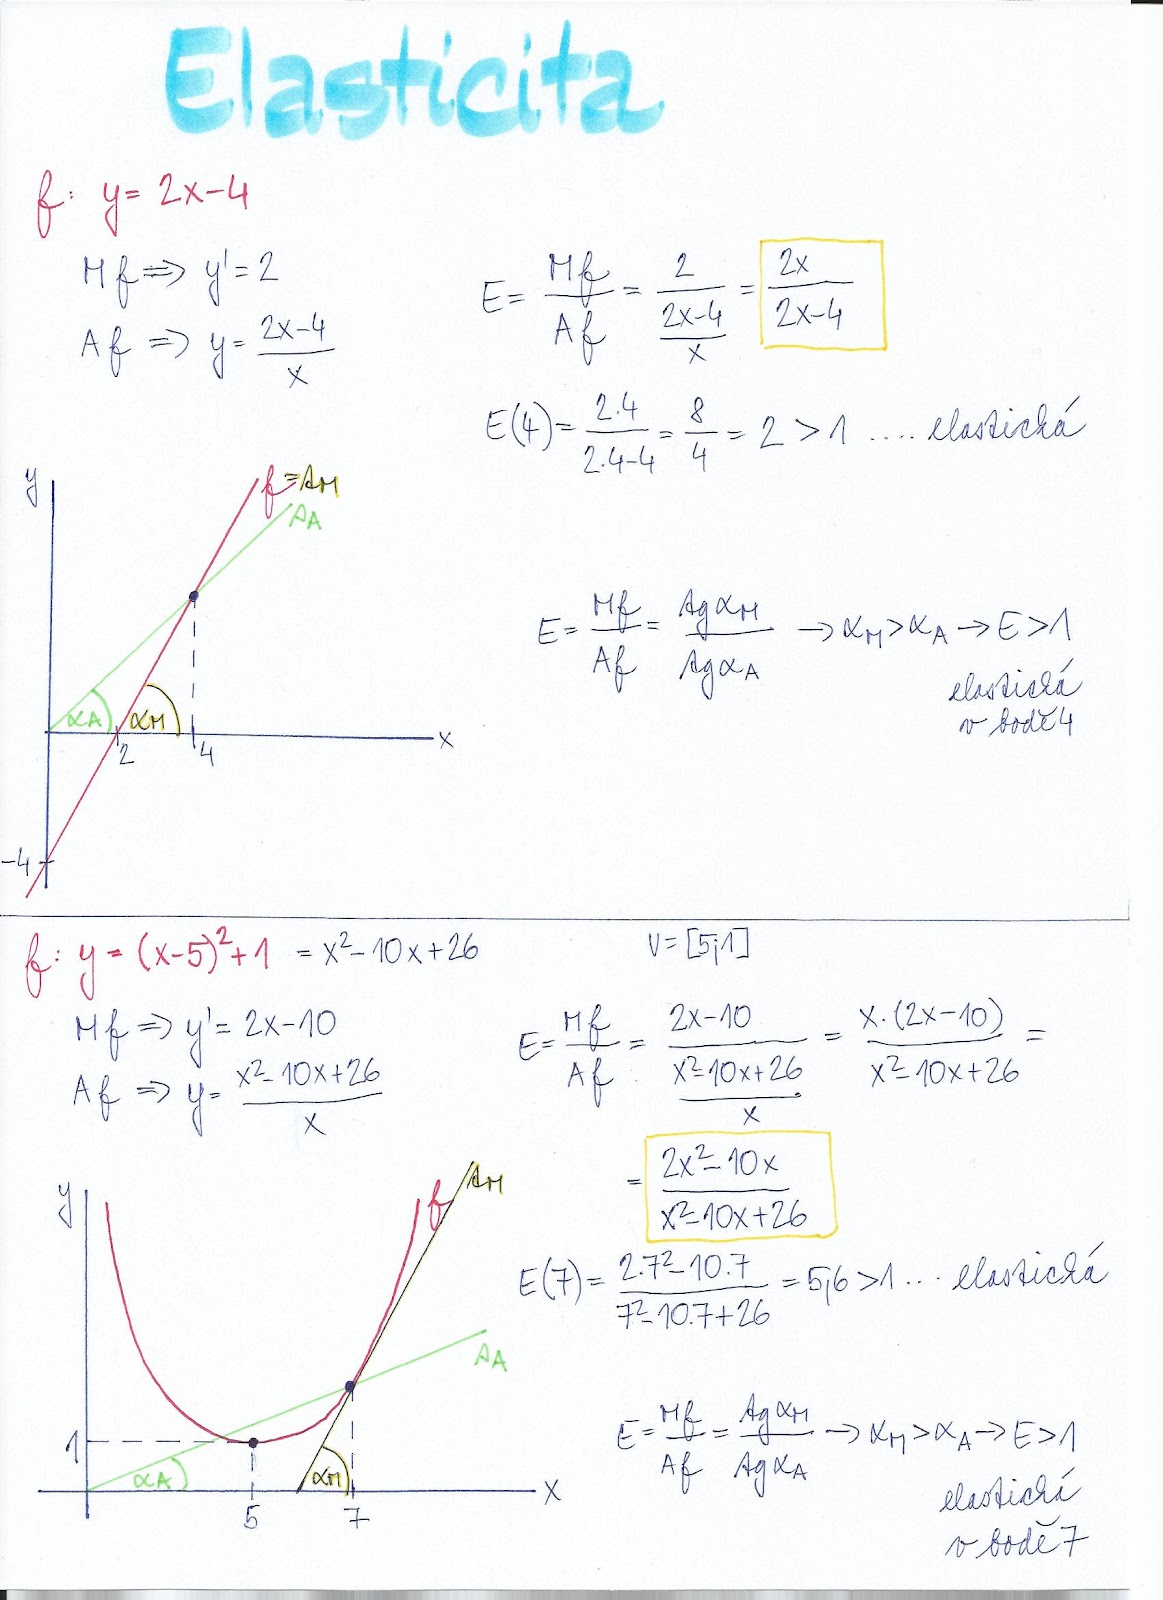 Elasticita
f: y = 2x-4
Mf => y' = 2
Af => y = (2x-4)/x
E = Mf/Af = 2/((2x-4)/x) = 2x/(2x-4)
E(4) = 2.4/(2.4-4) = 8/4 = 2 > 1 .... elastická
y
f = tM
tA
αA
αM
2
4
x
-4
E = Mf/Af = tgαM/tgαA → αM > αA → E > 1
elastická
v bodě 4
f: y = (x-5)²+1 = x²-10x+26
V = [5;1]
Mf => y' = 2x-10
Af => y = (x²-10x+26)/x
E = Mf/Af = (2x-10)/((x²-10x+26)/x) = x.(2x-10)/(x²-10x+26) =
= (2x²-10x)/(x²-10x+26)
E(7) = (2.7²-10.7)/(7²-10.7+26) = 5,6 > 1 ... elastická
y
f
tM
tA
1
αA
αM
5
7
x
E = Mf/Af = tgαM/tgαA → αM > αA → E > 1
elastická
v bodě 7